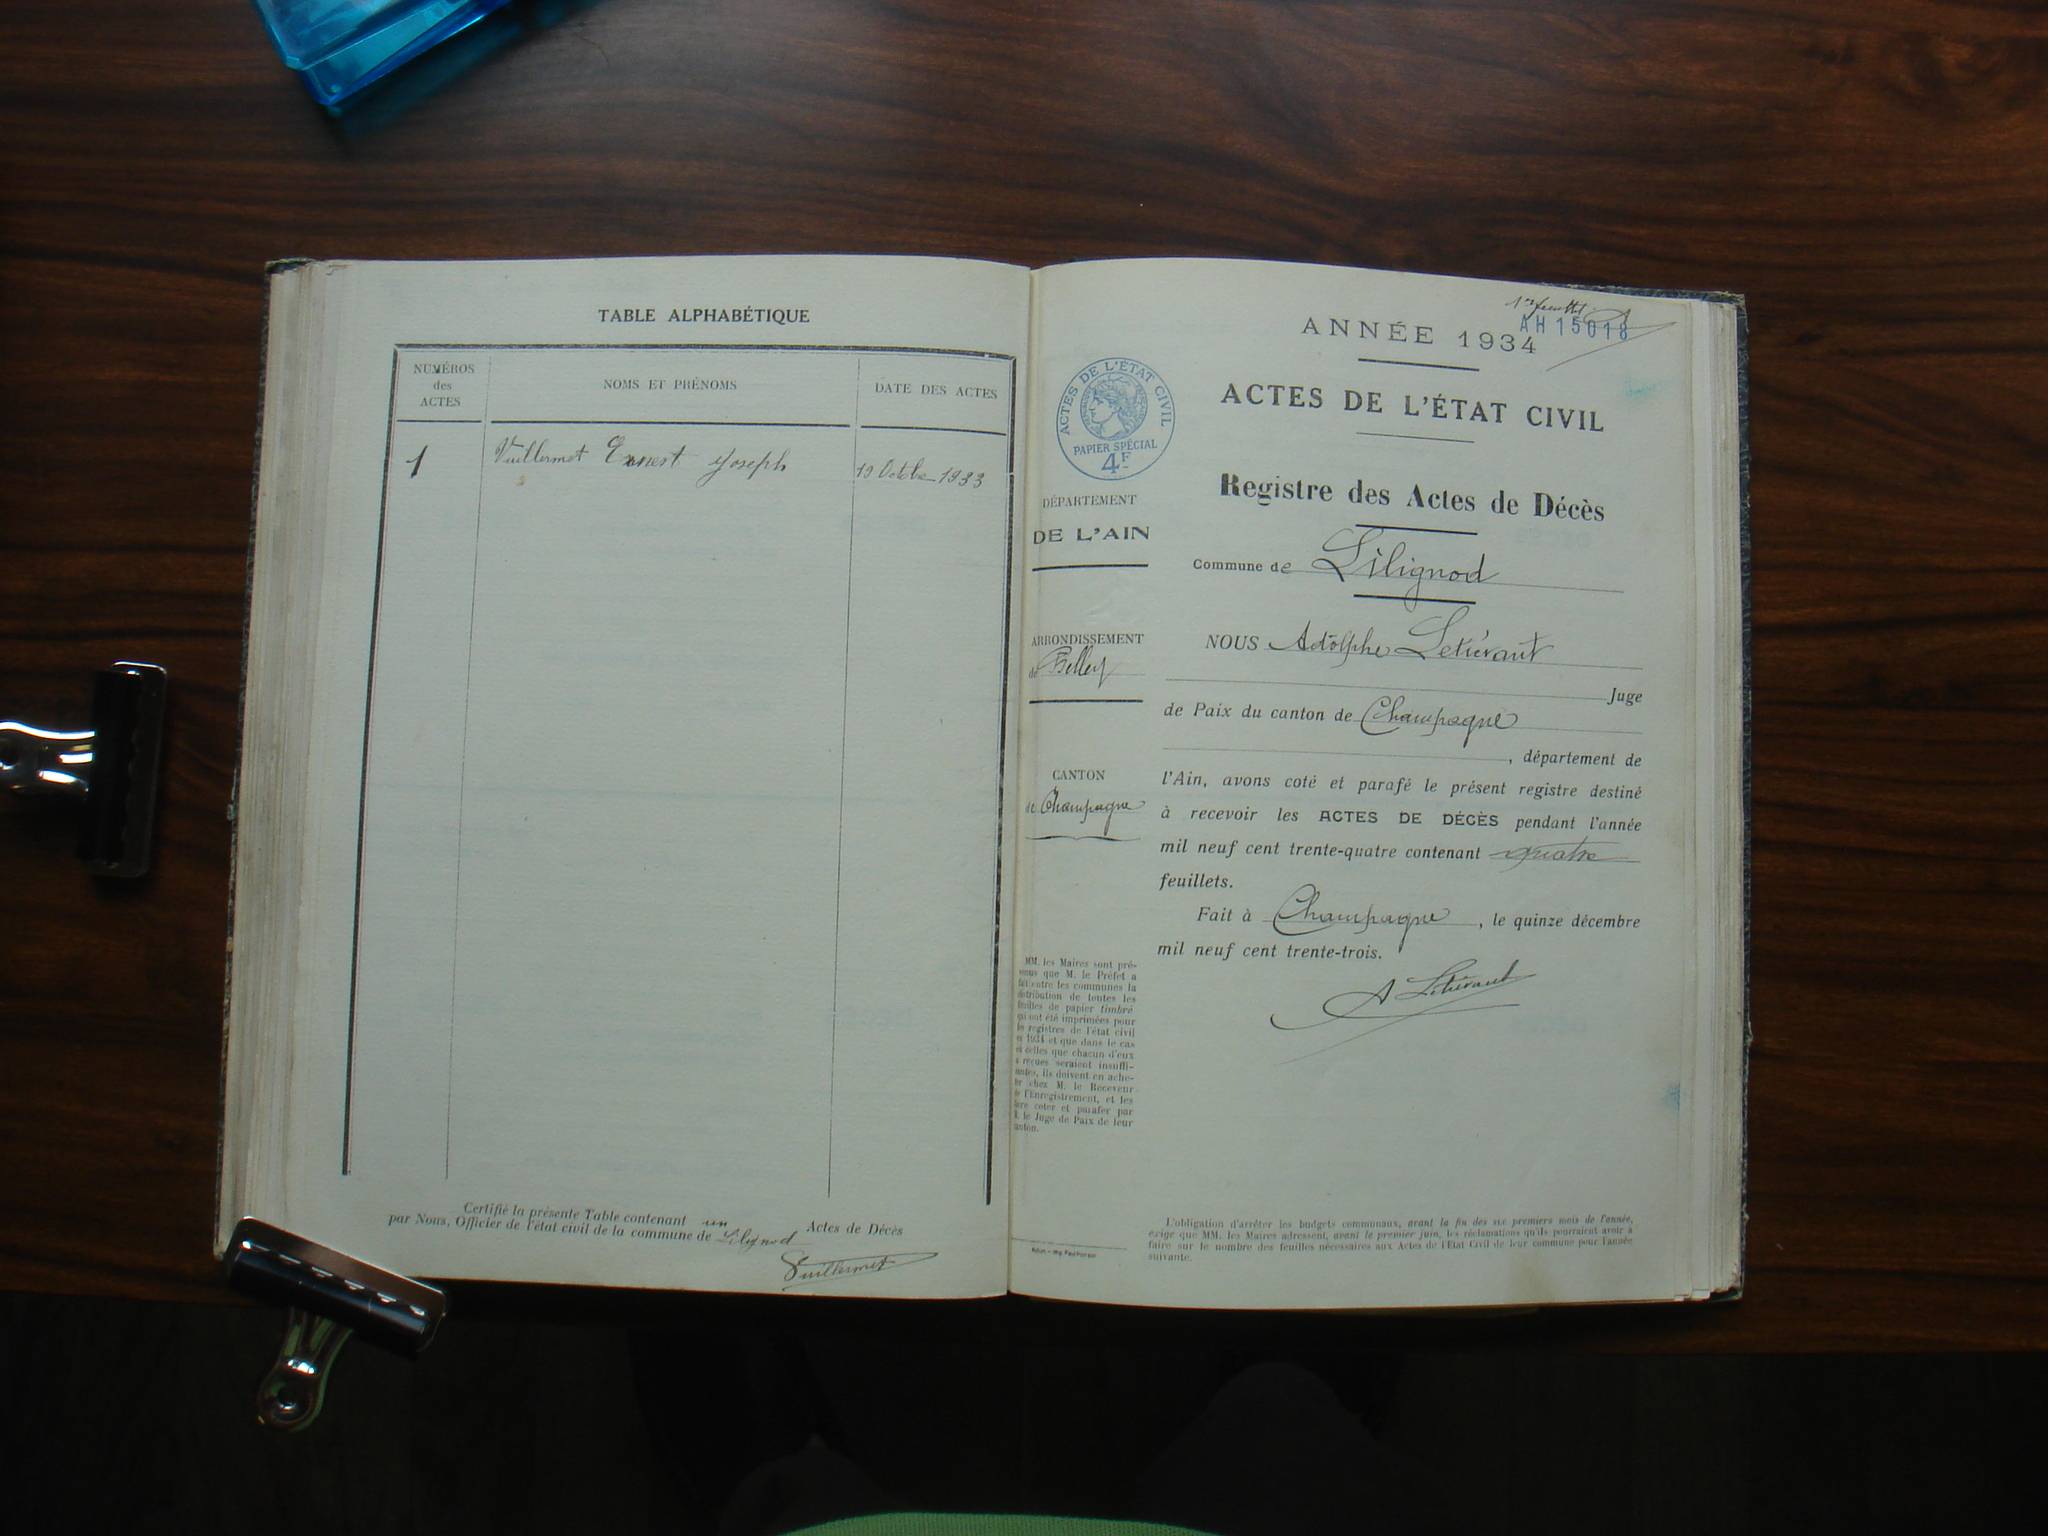 TABLE ALPHABÉTIQUE
NUMÉROS
des
ACTES
NOMS ET PRÉNOMS
DATE DES ACTES
1
Vuillermet Ernest Joseph
19 Octobre 1933
Certifié la présente Table contenant un Actes de Décès
par Nous, Officier de l'état civil de la commune de Lilignod
Vuillermet
1er feuillet
AH15018
ANNÉE 1934
ACTES DE L'ÉTAT CIVIL
PAPIER SPÉCIAL
4F
ACTES DE L'ÉTAT CIVIL
Registre des Actes de Décès
DÉPARTEMENT
DE L'AIN
Commune de Lilignod
ARRONDISSEMENT
de Belley
CANTON
de Champagne
NOUS Adolphe Letiévant
Juge
de Paix du canton de Champagne
, département de
l'Ain, avons coté et parafé le présent registre destiné
à recevoir les ACTES DE DÉCÈS pendant l'année
mil neuf cent trente-quatre contenant quatre
feuillets.
Fait à Champagne, le quinze décembre
mil neuf cent trente-trois.
A Letiévant
MM. les Maires sont pré-
venus que M. le Préfet a
fait entre les communes la
distribution de toutes les
feuilles de papier timbré
qui ont été imprimées pour
les registres de l'état civil
en 1934 et que dans le cas
où celles que chacun d'eux
a reçues seraient insuffi-
santes, ils doivent en ache-
ter chez M. le Receveur
de l'Enregistrement, et les
faire coter et parafer par
M. le Juge de Paix de leur
canton.
L'obligation d'arrêter les budgets communaux, avant la fin des six premiers mois de l'année,
exige que MM. les Maires adressent, avant le premier juin, les réclamations qu'ils pourraient avoir à
faire sur le nombre des feuilles nécessaires aux Actes de l'Etat Civil de leur commune pour l'année
suivante.